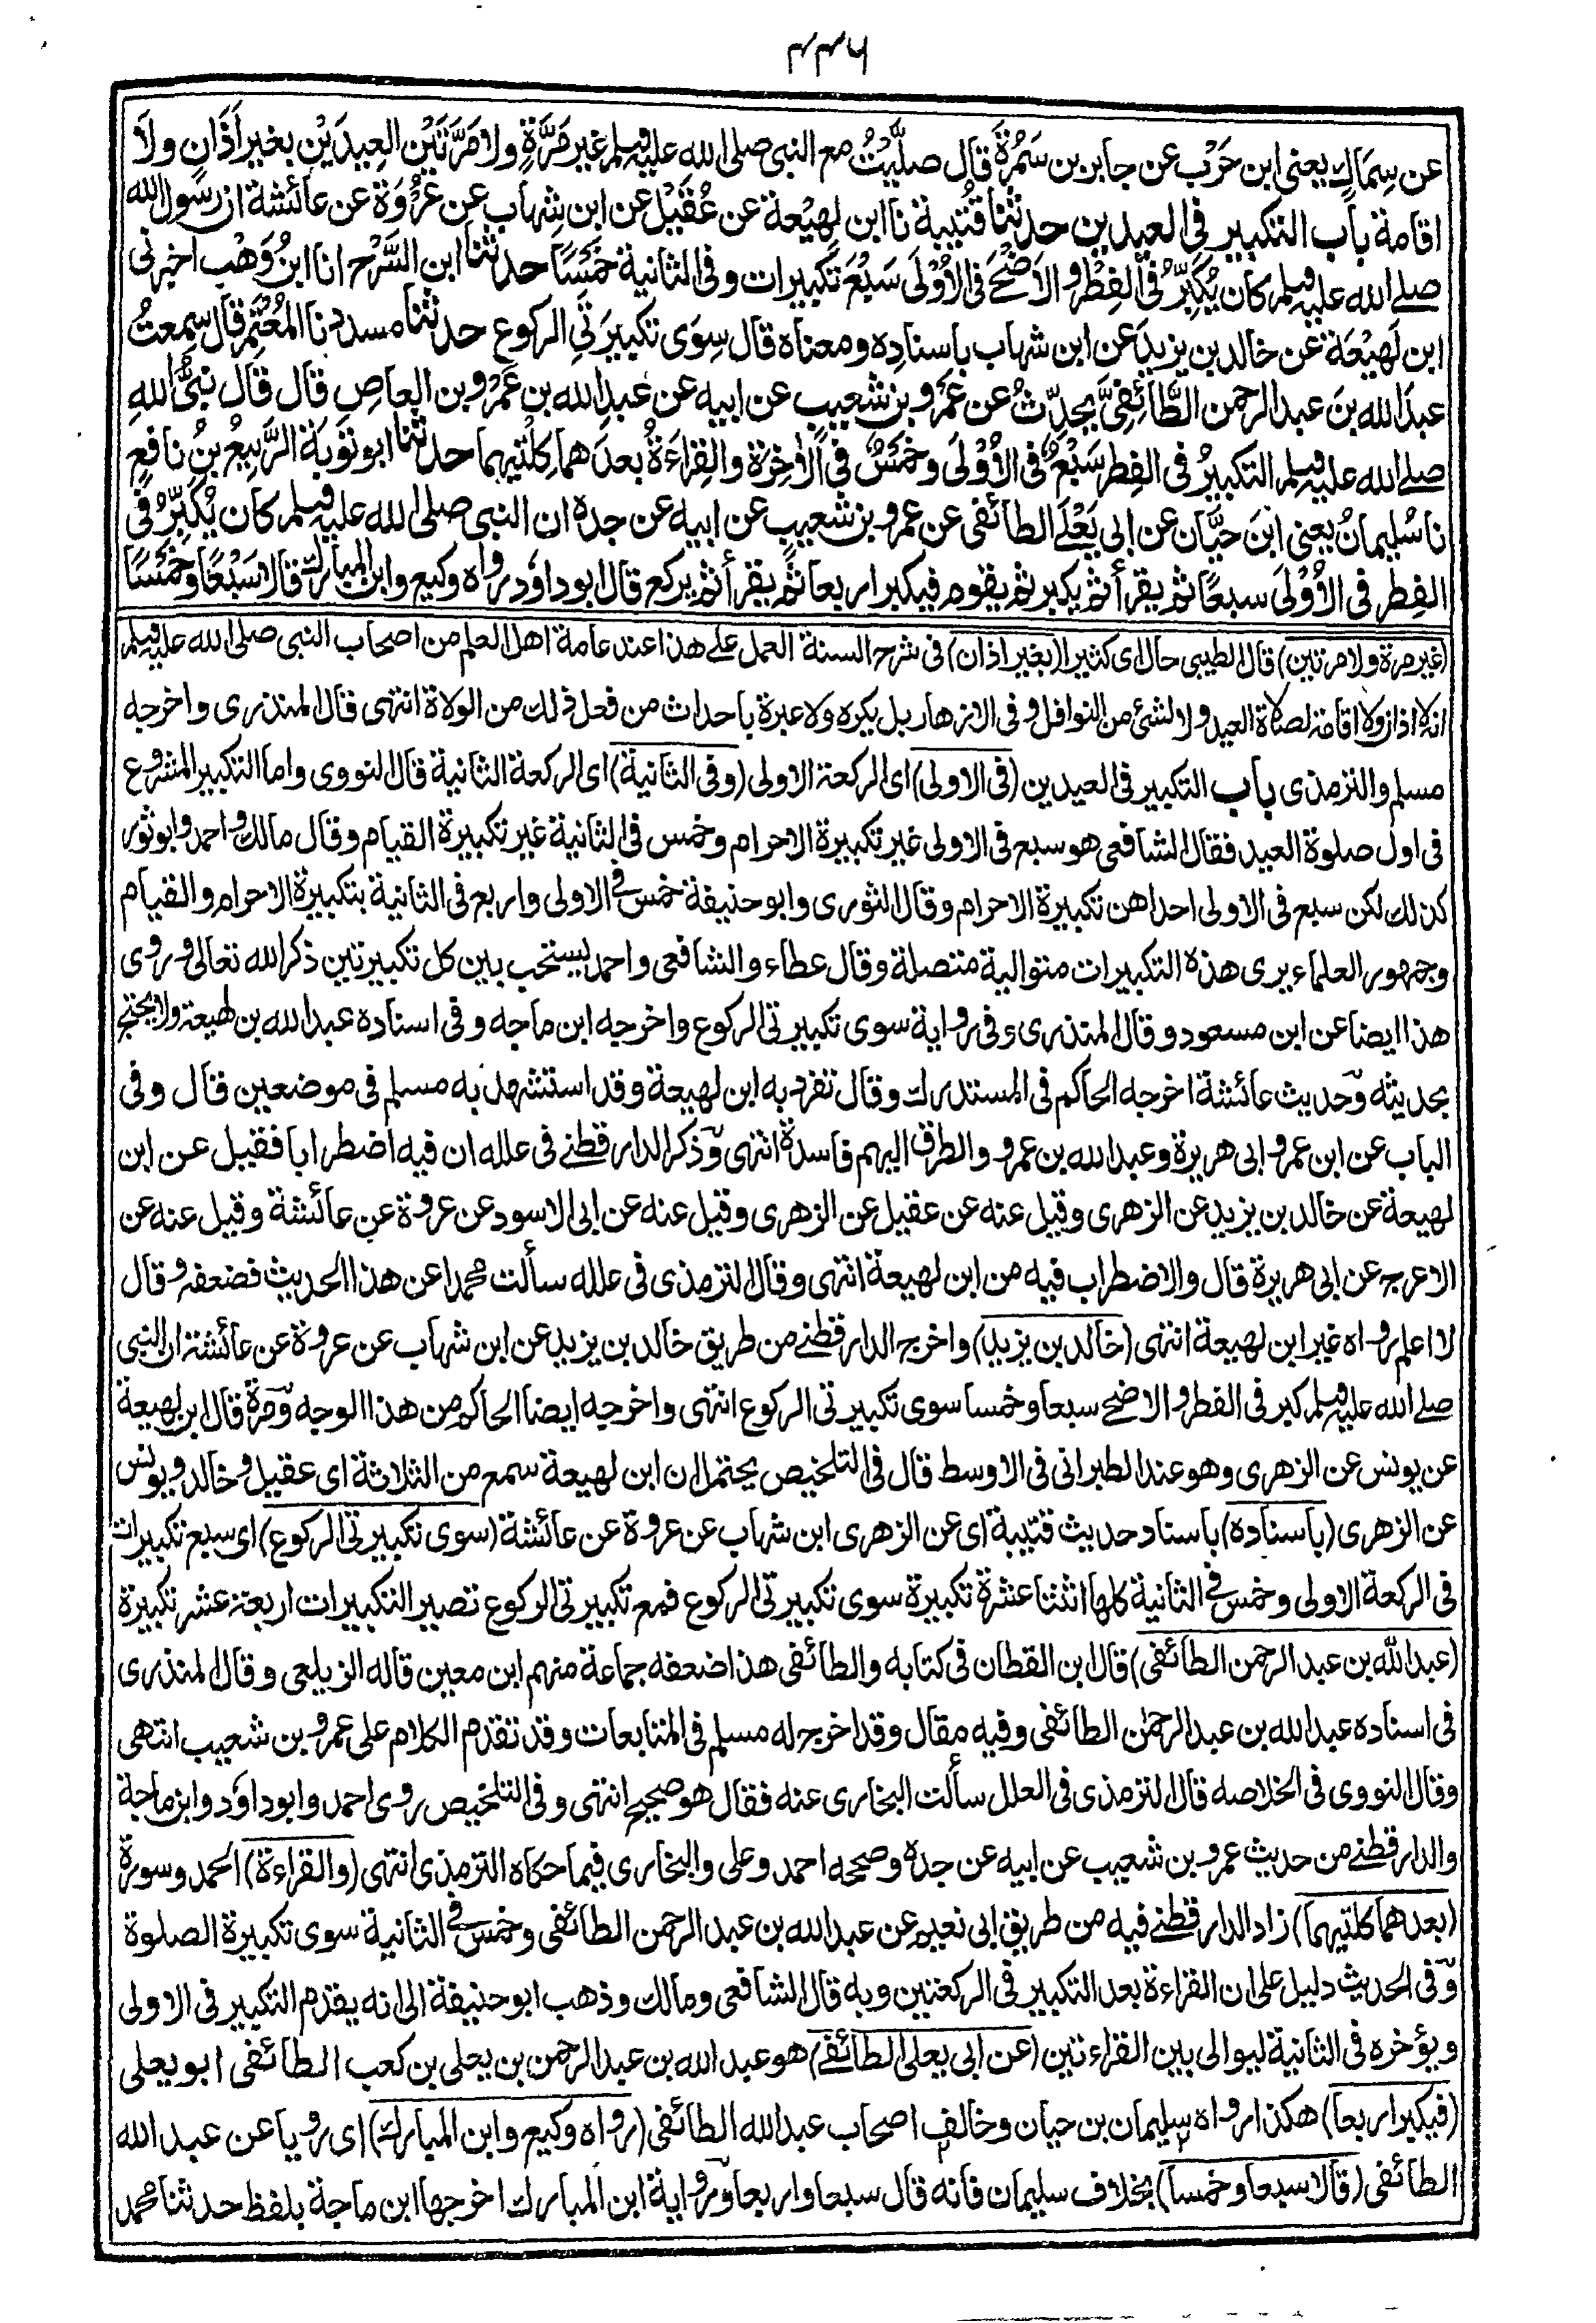 ٤٤٦
عن سِمَاكٍ يعنى ابن حَرْب عن جابر بن سَمُرَةَ قال صلَّيْتُ مع النبى صلى الله عليه وسلم غير مَرَّةٍ ولا مَرَّتَيْنِ العِيدَيْنِ بغير اَذَانٍ ولَا
اقامة باب التكبير فى العيدين حدثنا قُتَيبة نا ابن لَهِيْعة عن عُقَيْل عن ابن شِهاب عن عُرْوَة عن عائشة ان رسول الله
صلے الله عليه وسلم كان يُكَبِّرُ فى الفِطْرِ والاَضْحَے فى الاُوْلَى سَبْعَ تكبيرات وفى الثانية خَمْسًا حدثنا ابن السَّرْحِ انا ابنُ وَهْب اخبرنى
ابن لَهِيْعَة عن خالد بن يزيدَ عن ابن شهاب باسنادِه ومعناه قال سِوَى تكبيرَتَىِ الركوع حدثنا مسدد نا المُعْتَمِرُ قال سمعتُ
عبدَ الله بنَ عبد الرحمن الطَّائفِىَّ يحدِّثُ عن عَمْرِو بن شعيبٍ عن ابيه عن عبدِ الله بن عَمْرِو بن العاصِ قال قال نبىُّ اللهِ
صلے الله عليه وسلم التكبيرُ فى الفِطرِ سَبْعٌ فى الاُوْلَى وخَمْسٌ فى الاٰخِرَة والقِراءَةُ بعدَهما كِلْتَيهِما حدثنا ابو تَوْبَةَ الرَّبِيعُ بنُ نافعٍ
نا سُليمانُ يعنى ابنَ حيَّان عن ابى يَعْلَے الطائفى عن عمرو بن شعيب عن ابيه عن جده ان النبى صلى الله عليه وسلم كان يُكَبِّرُ فى
الفِطر فى الاُوْلَى سبعًا ثم يقرأ ثم يكبر ثم يقوم فيكبر اربعا ثم يقرأ ثم يركع قال ابو داوٗد رواه وكيع وابن المبارك قالا سَبْعًا وخَمْسًا
(غير مرة ولا مرتين) قال الطيبى حال اى كثيرا (بغير اذان) فى شرح السنة العمل علے هذا عند عامة اهل العلم من اصحاب النبى صلى الله عليه وسلم
انه لا اذان ولا اقامة لصلاة العيد ولا لشئ من النوافل و فى الازهار بل يكره ولا عبرة باحداث من فعل ذلك من الولاة انتهى قال المنذرى واخرجه
مسلم والترمذى باب التكبير فى العيدين (فى الاولى) اى الركعة الاولى (وفى الثانية) اى الركعة الثانية قال النووى واما التكبير المشروع
فى اول صلوة العيد فقال الشافعى هو سبع فى الاولى غير تكبيرة الاحرام وخمس فى الثانية غير تكبيرة القيام وقال مالك واحمد وابو ثور
كذلك لكن سبع فى الاولى احداهن تكبيرة الاحرام وقال الثورى وابو حنيفة خمس فى الاولى واربع فى الثانية بتكبيرة الاحرام والقيام
وجمهور العلماء يرى هذه التكبيرات متوالية متصلة وقال عطاء والشافعى واحمد يستحب بين كل تكبيرتين ذكر الله تعالى وروى
هذا ايضا عن ابن مسعود وقال المنذرى وفى رواية سوى تكبيرتى الركوع واخرجه ابن ماجه وفى اسناده عبد الله بن لهيعة ولا يحتج
بحديثه وحديث عائشة اخرجه الحاكم فى المستدرك وقال تفرد به ابن لهيعة وقد استشهد به مسلم فى موضعين قال وفى
الباب عن ابن عمر وابى هريرة وعبد الله بن عمرو والطرق اليهم فاسدة انتهى وذكر الدارقطنے فى علله ان فيه اضطرابا فقيل عن ابن
لهيعة عن خالد بن يزيد عن الزهرى وقيل عنه عن عقيل عن الزهرى وقيل عنه عن ابى الاسود عن عروة عن عائشة وقيل عنه عن
الاعرج عن ابى هريرة قال والاضطراب فيه من ابن لهيعة انتهى وقال الترمذى فى علله سألت محمدا عن هذا الحديث فضعفه وقال
لا اعلم رواه غير ابن لهيعة انتهى (خالد بن يزيد) واخرج الدارقطنے من طريق خالد بن يزيد عن ابن شهاب عن عروة عن عائشة ان النبى
صلے الله عليه وسلم كبر فى الفطر والاضحے سبعا وخمسا سوى تكبيرتى الركوع انتهى واخرجه ايضا الحاكم من هذا الوجه ومرة قال ابن لهيعة
عن يونس عن الزهرى وهو عند الطبرانى فى الاوسط قال فى التلخيص يحتمل ان ابن لهيعة سمع من الثلاثة اى عقيل وخالد ويونس
عن الزهرى (باسناده) باسناد حديث قتيبة اى عن الزهرى ابن شهاب عن عروة عن عائشة (سوى تكبيرتى الركوع) اى سبع تكبيرات
فى الركعة الاولى وخمس فى الثانية كلها اثنتا عشرة تكبيرة سوى تكبيرتى الركوع فمع تكبيرتى الركوع تصير التكبيرات اربعة عشر تكبيرة
(عبد الله بن عبد الرحمن الطائفى) قال ابن القطان فى كتابه والطائفى هذا ضعفه جماعة منهم ابن معين قاله الزيلعى وقال المنذرى
فى اسناده عبد الله بن عبد الرحمٰن الطائفى وفيه مقال وقد اخرج له مسلم فى المتابعات وقد تقدم الكلام على عمرو بن شعيب انتهى
وقال النووى فى الخلاصه قال الترمذى فى العلل سألت البخارى عنه فقال هو صحيح انتهى وفى التلخيص روى احمد وابو داوٗد وابن ماجة
والدارقطنے من حديث عمرو بن شعيب عن ابيه عن جده وصححه احمد وعلى والبخارى فيما حكاه الترمذى انتهى (والقراءة) الحمد وسورة
(بعدهما كلتيهما) زاد الدارقطنے فيه من طريق ابى نعيم عن عبد الله بن عبد الرحمن الطائفى وخمس فى الثانية سوى تكبيرة الصلوة
وفى الحديث دليل على ان القراءة بعد التكبير فى الركعتين وبه قال الشافعى ومالك وذهب ابو حنيفة الى انه يقدم التكبير فى الاولى
ويؤخره فى الثانية ليوالى بين القراءتين (عن ابى يعلى الطائفے) هو عبد الله بن عبد الرحمن بن يعلى بن كعب الطائفى ابو يعلى
(فيكبر اربعا) هكذا رواه سليمان بن حيان وخالف اصحاب عبد الله الطائفى (رواه وكيع وابن المبارك) اى رويا عن عبد الله
الطائفى (قالا سبعا وخمسا) بخلاف سليمان فانه قال سبعا واربعا ورواية ابن المبارك اخرجها ابن ماجة بلفظ حدثنا محمد